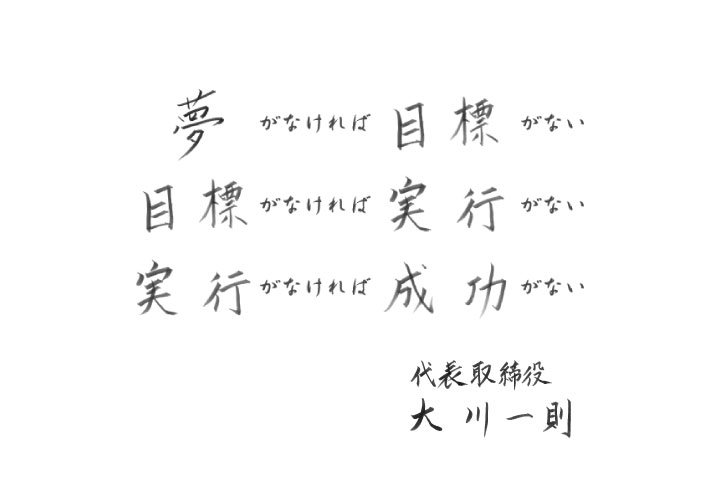 夢がなければ目標がない
目標がなければ実行がない
実行がなければ成功がない
代表取締役
大川一則